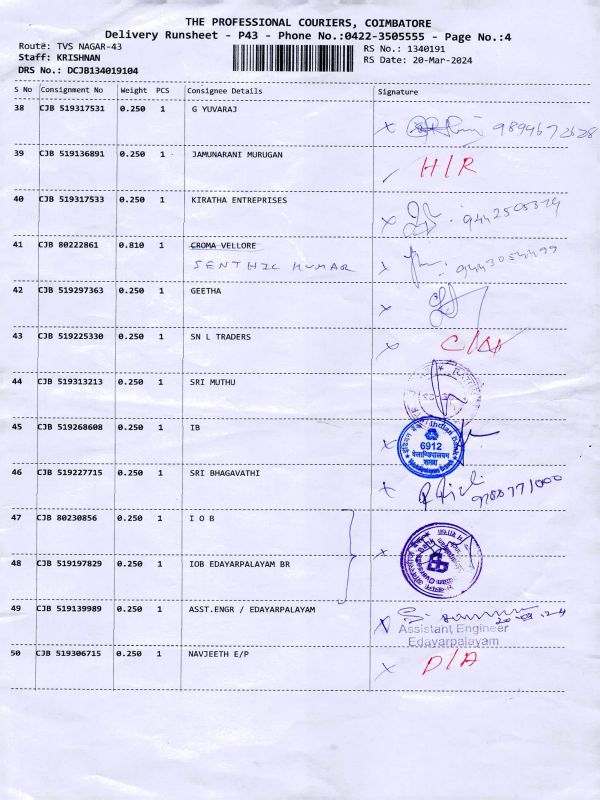 THE PROFESSIONAL COURIERS, COIMBATORE
Delivery Runsheet - P43 - Phone No.:0422-3505555 - Page No.:4
Route: TVS NAGAR-43
RS No.: 1340191
Staff: KRISHNAN
RS Date: 20-Mar-2024
DRS No.: DCJB134019104
S No Consignment No Weight PCS Consignee Details Signature
38 CJB 519317531 0.250 1 G YUVARAJ 9894672628
39 CJB 519136891 0.250 1 JAMUNARANI MURUGAN H/R
40 CJB 519317533 0.250 1 KIRATHA ENTREPRISES 9442505379
41 CJB 80222861 0.810 1 CROMA VELLORE
SENTHIL KUMAR 9443054499
42 CJB 519297363 0.250 1 GEETHA
43 CJB 519225330 0.250 1 SN L TRADERS
44 CJB 519313213 0.250 1 SRI MUTHU
45 CJB 519268608 0.250 1 IB
Indian Bank
6912
शाखा
46 CJB 519227715 0.250 1 SRI BHAGAVATHI
47 CJB 80230856 0.250 1 I O B
48 CJB 519197829 0.250 1 IOB EDAYARPALAYAM BR
49 CJB 519139989 0.250 1 ASST.ENGR / EDAYARPALAYAM
Assistant Engineer
Edayarpalayam
50 CJB 519306715 0.250 1 NAVJEETH E/P D/A